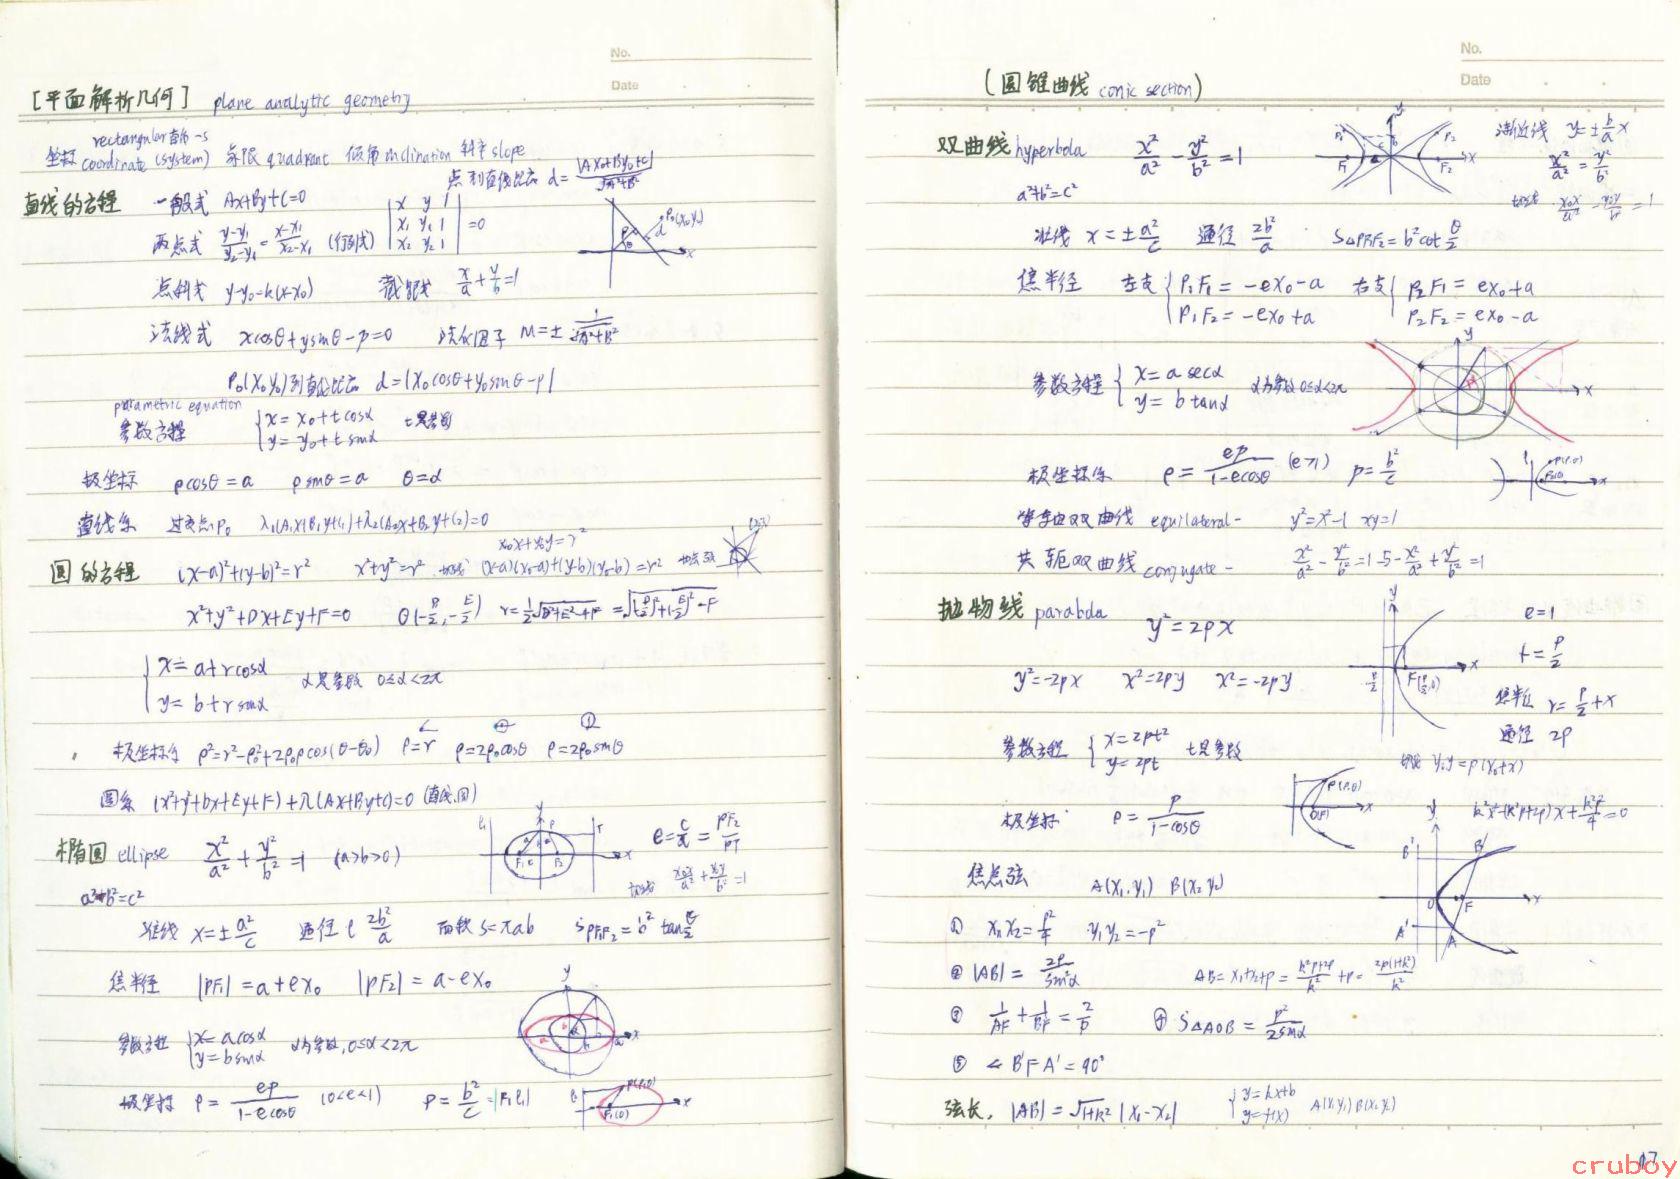 No.
Date
[平面解析几何] plane analytic geometry
rectangular 直角~s
坐标 coordinate (system) 象限 quadrant 倾角 inclination 斜率 slope
点到直线距离 d=|Ax₀+By₀+C|/√(A²+B²)
直线的方程 一般式 Ax+By+C=0
两点式 (y-y₁)/(y₂-y₁)=(x-x₁)/(x₂-x₁) (行列式) |x y 1; x₁ y₁ 1; x₂ y₂ 1|=0
点斜式 y-y₀=k(x-x₀) 截距式 x/a+y/b=1
法线式 xcosθ+ysinθ-p=0 法化因子 M=±1/√(A²+B²)
P₀(x₀y₀)到直线距离 d=|x₀cosθ+y₀sinθ-p|
parametric equation
参数方程 {x=x₀+tcosα y=y₀+tsinα t是参数
极坐标 ρcosθ=a ρsinθ=a θ=α
直线系 过交点P₀ λ₁(A₁x+B₁y+C₁)+λ₂(A₂x+B₂y+C₂)=0
x₀x+y₀y=r²
圆的方程 (x-a)²+(y-b)²=r² x²+y²=r² 切线 (x-a)(x₀-a)+(y-b)(y₀-b)=r² 切点弦
x²+y²+Dx+Ey+F=0 O(-D/2,-E/2) r=½√(D²+E²-4F)=√((D/2)²+(E/2)²-F)
{x=a+rcosα y=b+rsinα α是参数 0≤α<2π
极坐标系 ρ²=r²-ρ₀²+2ρ₀ρcos(θ-θ₀) ρ=r ρ=2ρ₀cosθ ρ=2ρ₀sinθ
圆系 (x²+y²+Dx+Ey+F)+λ(Ax+By+C)=0 (直线,圆)
椭圆 ellipse x²/a²+y²/b²=1 (a>b>0) e=c/a=PF₂/PT
切线 x₀x/a²+y₀y/b²=1
a²-b²=c²
准线 x=±a²/c 通径 l 2b²/a 面积 S=πab S PF₁F₂=b²tan θ/2
焦半径 |PF₁|=a+ex₀ |PF₂|=a-ex₀
参数方程 {x=acosα y=bsinα α为参数,0≤α<2π
极坐标 ρ=ep/(1-ecosθ) (0<e<1) p=b²/c=|F₁l₁|
No.
Date
(圆锥曲线 conic section)
双曲线 hyperbola x²/a²-y²/b²=1 渐近线 y=±b/a x
x²/a²=y²/b²
a²+b²=c²
切线 x₀x/a²-y₀y/b²=1
准线 x=±a²/c 通径 2b²/a S△PF₁F₂=b²cot θ/2
焦半径 左支{P₁F₁=-ex₀-a P₁F₂=-ex₀+a 右支{P₂F₁=ex₀+a P₂F₂=ex₀-a
参数方程 {x=a secα y=b tanα α为参数 0≤α<2π
极坐标系 ρ=ep/(1-ecosθ) (e>1) p=b²/c
等轴双曲线 equilateral~ y²=x²-1 xy=1
共轭双曲线 conjugate~ x²/a²-y²/b²=1 与-x²/a²+y²/b²=1
抛物线 parabola y²=2px e=1
y²=-2px x²=2py x²=-2py
f=p/2
焦半径 r=p/2+x
通径 2p
参数方程 {x=2pt² y=2pt t是参数 切线 y₀y=p(x₀+x)
极坐标 ρ=p/(1-cosθ) k²x²-(k²p+2p)x+k²p²/4=0
焦点弦 A(x₁,y₁) B(x₂y₂)
① x₁x₂=p²/4 y₁y₂=-p²
② |AB|=2p/sin²α AB=x₁+x₂+p=(k²p+2p)/k²+p=2p(1+k²)/k²
③ 1/AF+1/BF=2/p ④ S△AOB=p²/2sinα
⑤ ∠B'FA'=90°
弦长, |AB|=√(1+k²)|x₁-x₂| {y=kx+b y=f(x) A(x₁y₁)B(x₂y₂)
17
cruboy